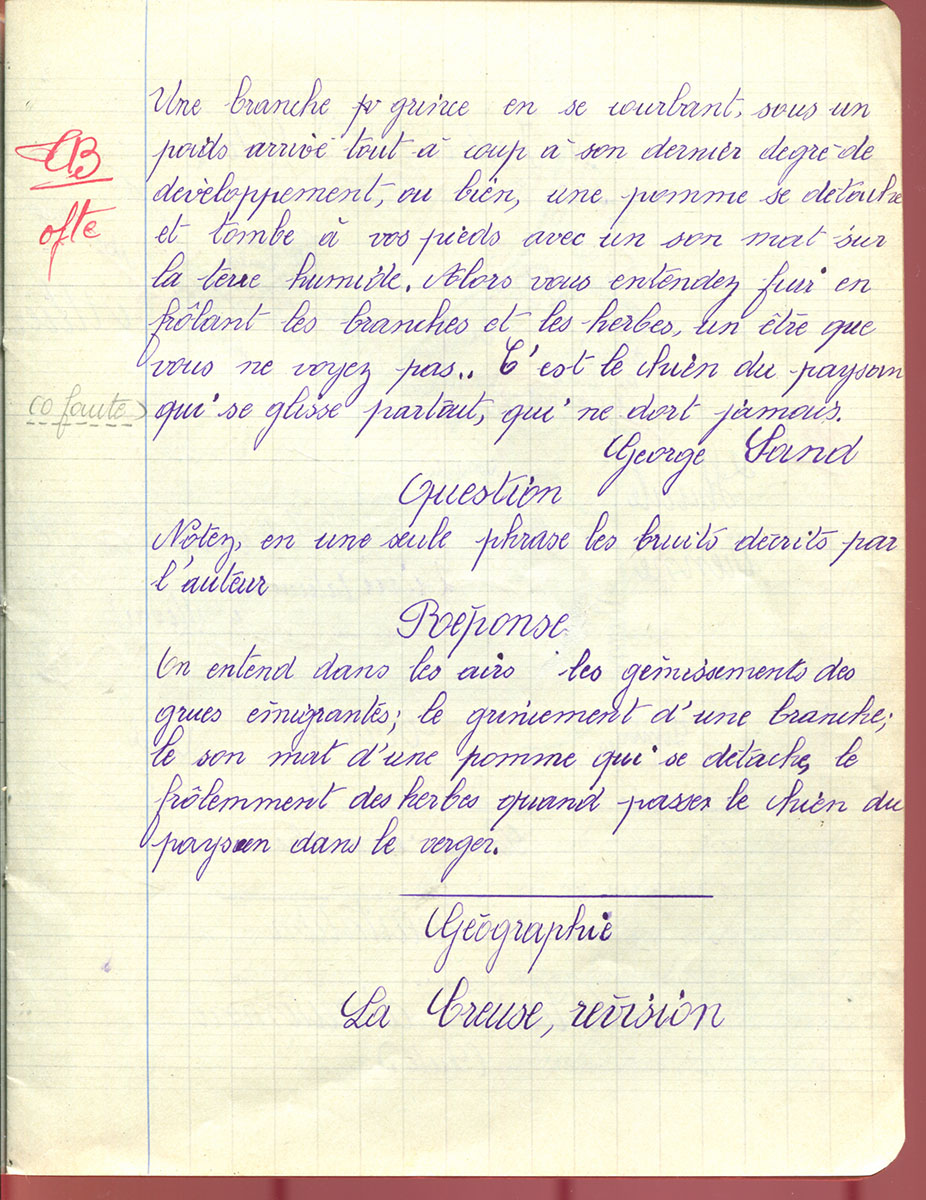 Une branche grince en se courbant, sous un
poids arrivé tout à coup à son dernier degré de
développement, ou bien, une pomme se détache
et tombe à vos pieds avec un son mat sur
la terre humide. Alors vous entendez fuir en
frôlant les branches et les herbes, un être que
vous ne voyez pas.. C'est le chien du paysan
co faute qui se glisse partout, qui ne dort jamais.
George Sand
Question
Notez, en une seule phrase les bruits décrits par
l'auteur
Réponse
On entend dans les airs les gémissements des
grues émigrantes; le grincement d'une branche;
le son mat d'une pomme qui se détache, le
frôlemment des herbes quand passer le chien du
paysan dans le verger.
Géographie
La Creuse, révision
CB
ofte